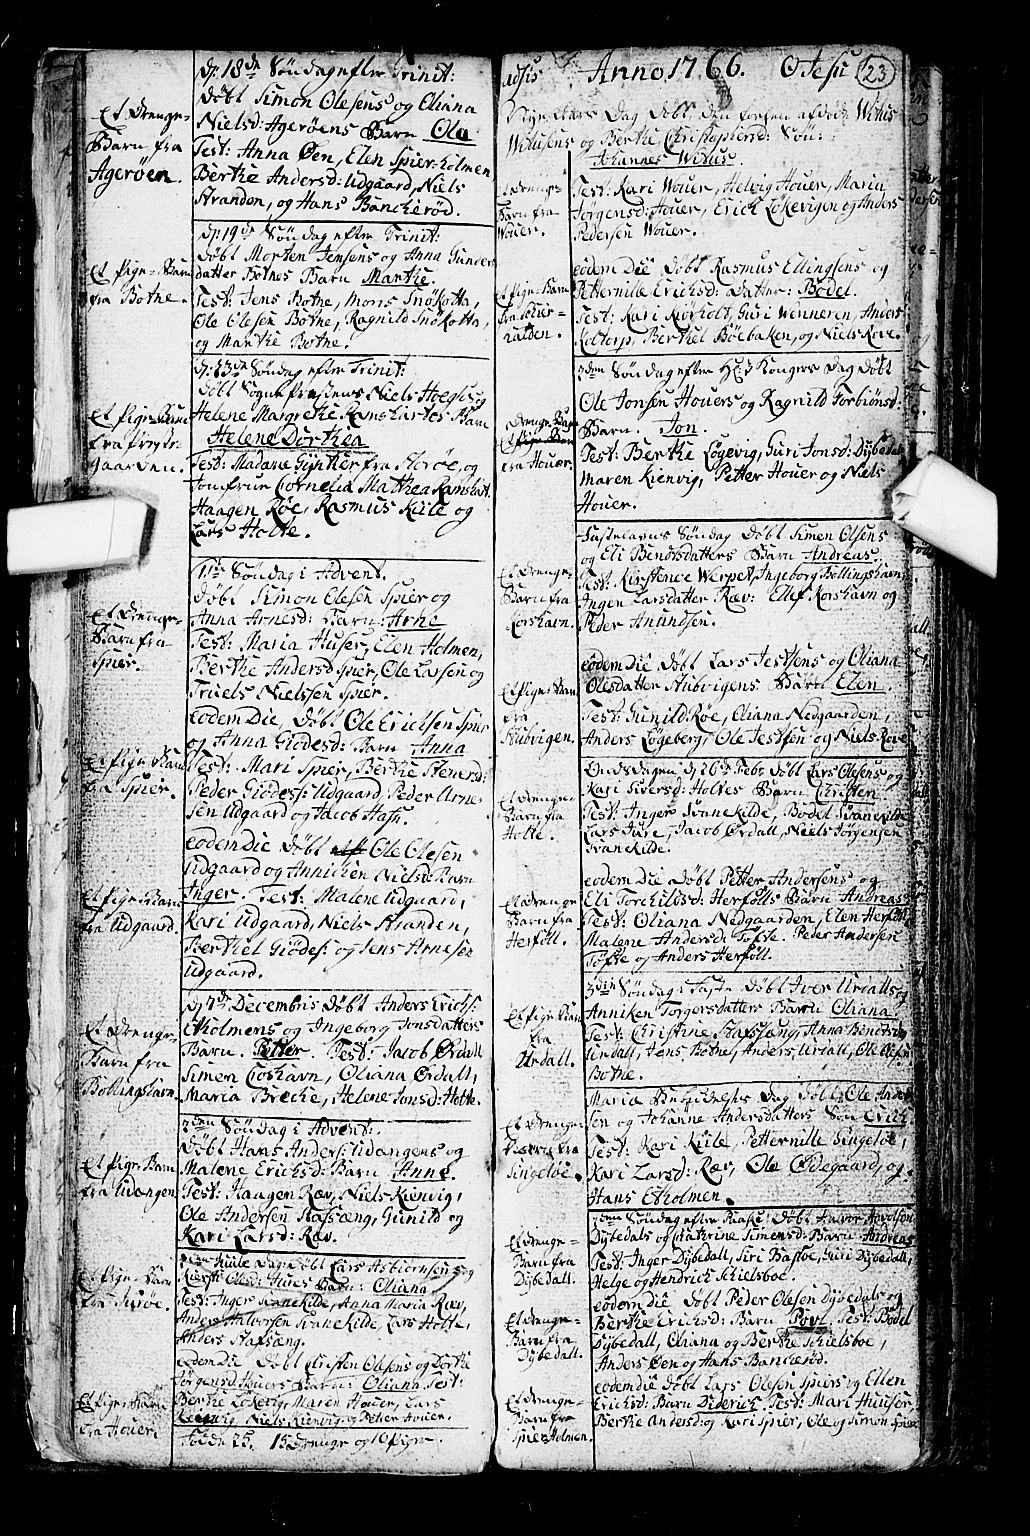 Dp: 18de Søndag efter Trinit:
Døbt Simon Olesens og Oliana
Nielsd: Agerøens Barn Ola
Test: Anna Øen, Elen Spier=holmen
Berthe Andersd: Udgaard, Niels
Stranden, og Hans Banckerød.
Et Drenge-
Barn fra
Agerøen.
Dp: 19de Søndag efter Trinit:
Døbt Morten Jensens og Anna Gunders
datter Bothes Barn Marthe.
Test: Jens Bothe, Mons Snøkotta,
Ole Olesen Bothe, Ragnild Snøkotta,
og Marthe Bothe.
Et Pige=Barn
fra Bothe.
D: 23de Søndag efter Trinit:
Døbt Sogne Præstens Niels Hoegs og
Helene Margrethe Ramsharts Barn
Helene Dorthea
Test: Madame Gynther fra Herøe, og
Jomfrue Cornelia Mathea Ramshart
Haagen Røe, Rasmus Kiile og
Lars Holte.
Et Pige-Barn
fra Præste
gaarden.
1ste Søndag i Advent.
Døbt Simon Olesen Spier og
Anna Arnesd: Barn: Arne
Test: Maria Huser, Elen Holmen,
Berthe Andersd Spier, Ole Larsen og
Truels Nielssen Spier.
Et Drenge-
Barn fra
Spier.
eodem Die, Døbt Ole Erichsen Spier
og Anna Giødesd: Barn Anna
Test: Mari Spier, Berthe Stenersd:
Peder Giødess: Udgaard, Peder Arne-
sen Udgaard og Jacob Hafs.
Et Pige Barn
fra Spier.
eodem Die Døbt Ole Olesen
Udgaard og Annichen Nielsd: Barn
Inger. Test: Malene Udgaard,
Kari Udgaard, Niels Stranden,
Berthel Giødes: og Jens Arnesen
Udgaard.
Et Pige=Barn
fra Udgaard.
D 7de Decembris Døbt Anders Erichs:
Eeholmens og Ingeborg Jonsdatters
Barn. Petter. Test: Jacob Ørdall
Simen Corshavn, Oliana Ørdall,
Maria Breche, Helene Jonsd: Holte.
Et Drenge-
Barn fra
Bollingshavn.
2den Søndag i Advent.
Døbt Hans Anders: Udængens og
Malene Erichsd: Barn Anne.
Test: Haagen Ræv, Niels Kienvig,
Ole Andersen Stafsæng, Gunild og
Kari Larsd: Ræv.
Et Pige-Barn
fra Udængen
2den Juule Dag Døbt Lars Asbiørnsens og
Kiersti Olesd: Barn: Oliana
Test: Inger Svanekilde, Anna Maria Ræv,
Anders Halvorsen Svanekilde, Lars Holte,
Anders Stafsæng.
Et Pige-Barn
eodem Die Døbt Christen Olesens og Dorthe
Jørgensd: Houers Barn: Oliana Test:
Berthe Løkevig, Maren Houer, Lars
Kienvig, Niels Kienvig og Petter Houer.
Et Pige-Barn
fra Houer.
Fødde 25. 15 Drenge og 10 Piger.
Anno 1766.
23
Nyt-Aars Dag Døbt, den forhen afdøde Withus
Withusens og Berthe Christophersd: Søn:
Johannes Withus.
Test: Kari Wouer, Helvig Houer, Maria
Jørgensd: Houer, Erich Løkevigen og Anders
Pedersen Wouer.
Et Drenge-
Barn fra
Wouer.
eodem Die Døbt Rasmus Ellingsens og
Petternille Erichsd: Datter: Bodel.
Test: Kari Morholt, Guri Wenneren, Anders
Koltorp, Berthel Bøebaken, og Niels Rove.
Et Pige-Barn
2den Søndag efter H: 3 Kongers Dag Døbt
Ole Jonsen Houers og Ragnild Torbiønsd:
Barn. Jon.
Test: Berthe Løgevig, Guri Jonsd: Dybedal
Maren Kienvig, Petter Houer og Niels
Houer.
Drenge-Barn
fra Houer.
Fastelavns Søndag Døbt Simen Olsens
og Eli Bendtsdatters Barn Andreas.
Test: Kirstence Werpet, Ingeborg Bollingshavn
Ingen Larsdatter Ræv: Ellef Korshavn og
Peder Anundsen.
Et Drenge-
Barn fra
Corshavn.
eodem Die Døbt Lars Jestsens og Oliana
Olesdatter Stubvigens Barn Elen.
Test: Gunild Røe, Oliana Nedgaarden,
Anders Løgeberg, Ole Jestsen og Niels Rove
Et Pige Barn
fra
Stubvigen.
Onsdagen d 26de Febr Døbt Lars Olesens og
Kari Siversd: Holtes Barn Christen.
Test: Inger Svanekilde, Bodel Svanekilde
Lars Jure, Jacob Ørdall, Niels Jørgensen
Svanekilde.
Et Drenge-
Barn fra
Holte.
eodem Die Døbt Petter Andersens og
Eli Torchildsd: Herføls Barn Andreas
Test: Oliana Nedgaarden, Elen Herføll
Malene Andersd: Tofte. Peder Andersen
Tofte og Anders Herføll.
Et Drenge
Barn fra
Herføll.
3die Søndag i Faste Døbt Iver Urdalls og
Anniken Torgersdatters Barn Oliana
Test: Christine Stafsæng, Anna Bendtsd:
Urdall, Jens Bothe, Anders Urdall, Ole Olsen
Bothe.
Et Pige Barn
fra
Urdall.
Maria Bebudelses Dag Døbt Ole Ander-
sen og Johanne Andersdatters Søn Erich.
Test: Kari Kiile, Petternille Singeløe,
Kari Larsd: Ræv, Ole Ødegaard, og
Hans Eeholmen.
Et Drenge
Barn fra
Singeløe.
2den Søndag efter Paaske Døbt Halvor Hovelsen
Dybedals og Cathrine Simensd: Barn Andreas
Test: Inger Dybedall, Siri Bastøe, Guri Dybedall,
Helge og Hendrich Schielsboe.
Et Drenge-
Barn fra
Dybedall.
eodem Die Døbt Peder Olesen Dybedals og
Berthe Erichsd: Barn Povl. Test: Bodel
Dybedall, Oliana og Berthe Schielsboe,
Anders Øen og Hans Banckerød.
Et Drenge-
Barn fra
Dybedall.
eodem die Døbt Lars Olesen Spiers og Ellen
Erichsd: Barn Diderich. Test: Mari Huuser,
Berthe Andersd og Kari Spier, Ole og Simon Spier
Et Drenge-
Barn fra
Spier Holmen.